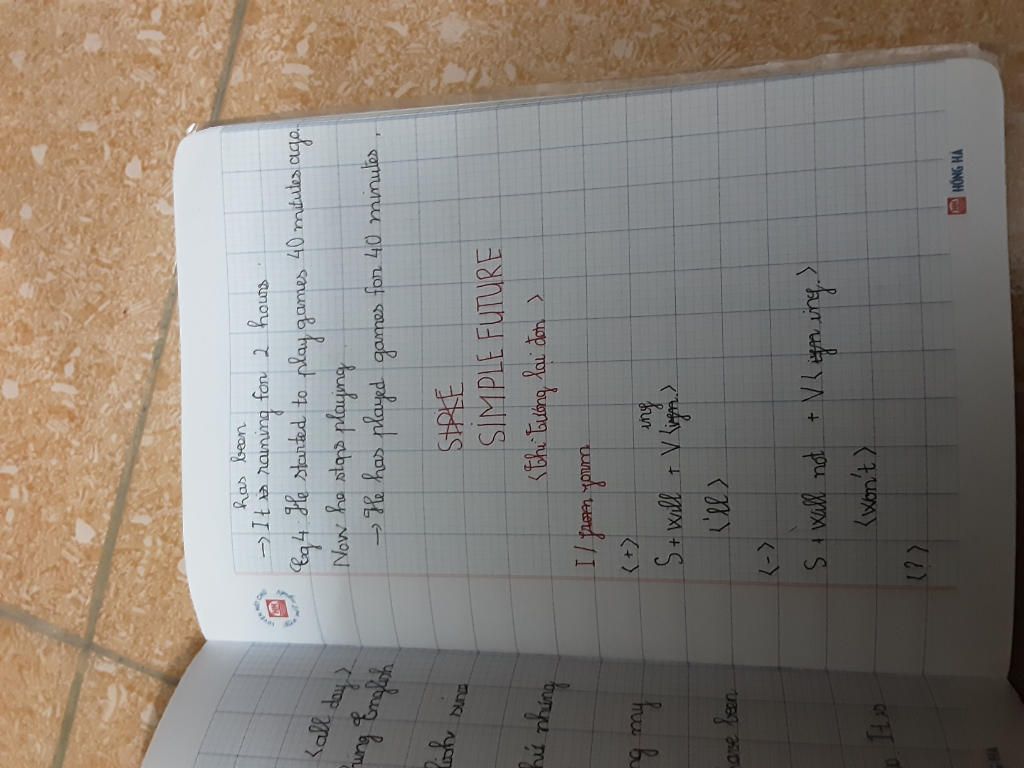 has been
→ It is raining for 2 hours.
Eg 4: He started to play games 40 minutes ago.
Now he stops playing
→ He has played games for 40 minutes.
SIMPLE FUTURE
(Thì Tương lai đơn)
I/
(+)
ing
S + will + V
('ll)
(-)
S + will not + V( ing)
(won't)
(?)
HỒNG HÀ
(all day)
English
since
thú nhúng
my
been
It is